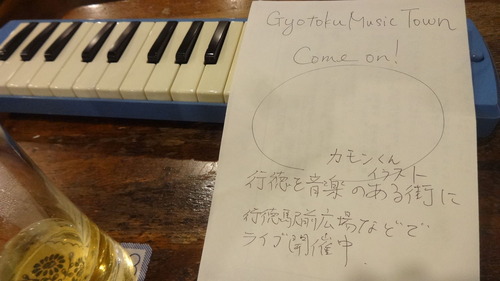 Gyotoku Music Town
Come on!
カモンくん
イラスト
行徳を音楽のある街に
行徳駅前広場などで
ライブ開催中